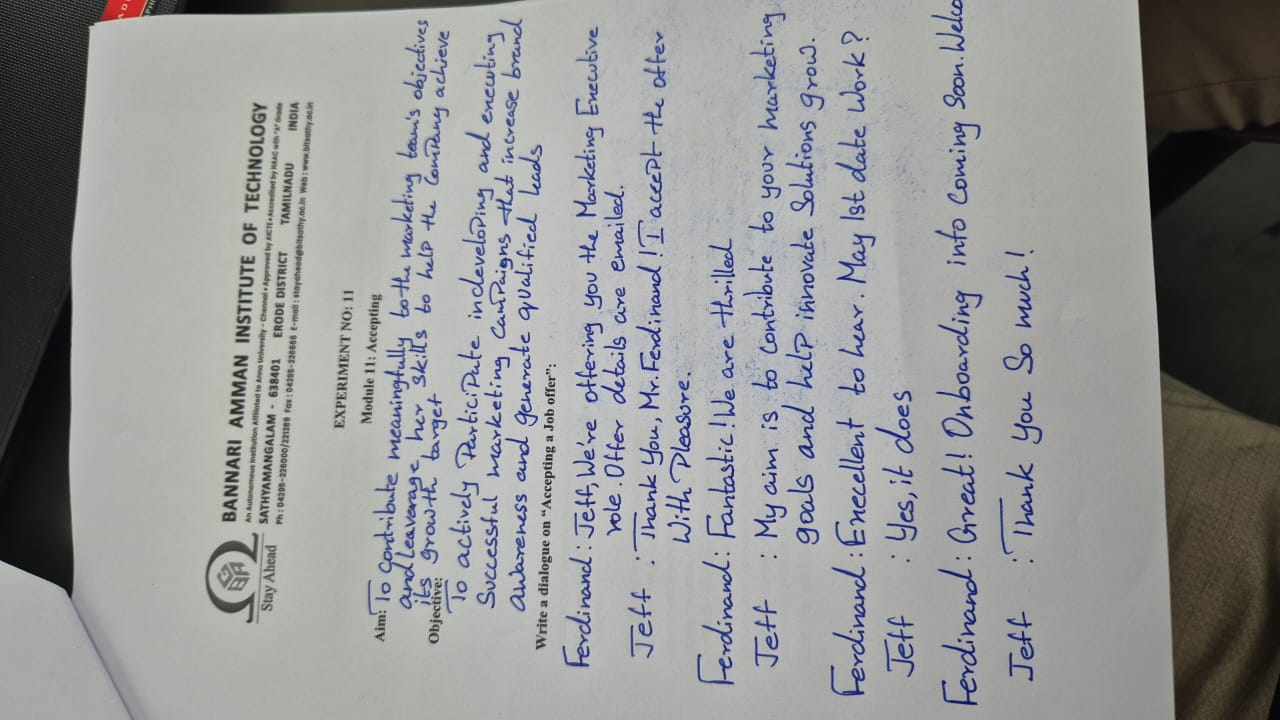 BANNARI AMMAN INSTITUTE OF TECHNOLOGY
An Autonomous Institution Affiliated to Anna University - Chennai • Approved by AICTE • Accredited by NAAC with "A" Grade
SATHYAMANGALAM - 638401 ERODE DISTRICT TAMILNADU INDIA
Ph : 04295-226000/221289 Fax : 04295-226666 E-mail : stayahead@bitsathy.ac.in Web : www.bitsathy.ac.in
Stay Ahead
EXPERIMENT NO: 11
Module 11: Accepting
Aim: To contribute meaningfully to the marketing team's objectives
and leaverage her skills to help the company achieve
its growth target
Objective:
To actively Participate indeveloping and executing
Successful marketing campaigns that increase brand
awareness and generate qualified leads
Write a dialogue on “Accepting a Job offer”:
Ferdinand : Jeff, We're offering you the Marketing Executive
role. Offer details are emailed.
Jeff : Thank you, Mr. Ferdinand! I accept the offer
With Pleasure.
Ferdinand : Fantastic! We are thrilled
Jeff : My aim is to contribute to your marketing
goals and help innovate Solutions grow.
Ferdinand : Enecellent to hear. May 1st date Work?
Jeff : Yes, it does
Ferdinand : Great! Onboarding into coming Soon. Welco
Jeff : Thank you So much!